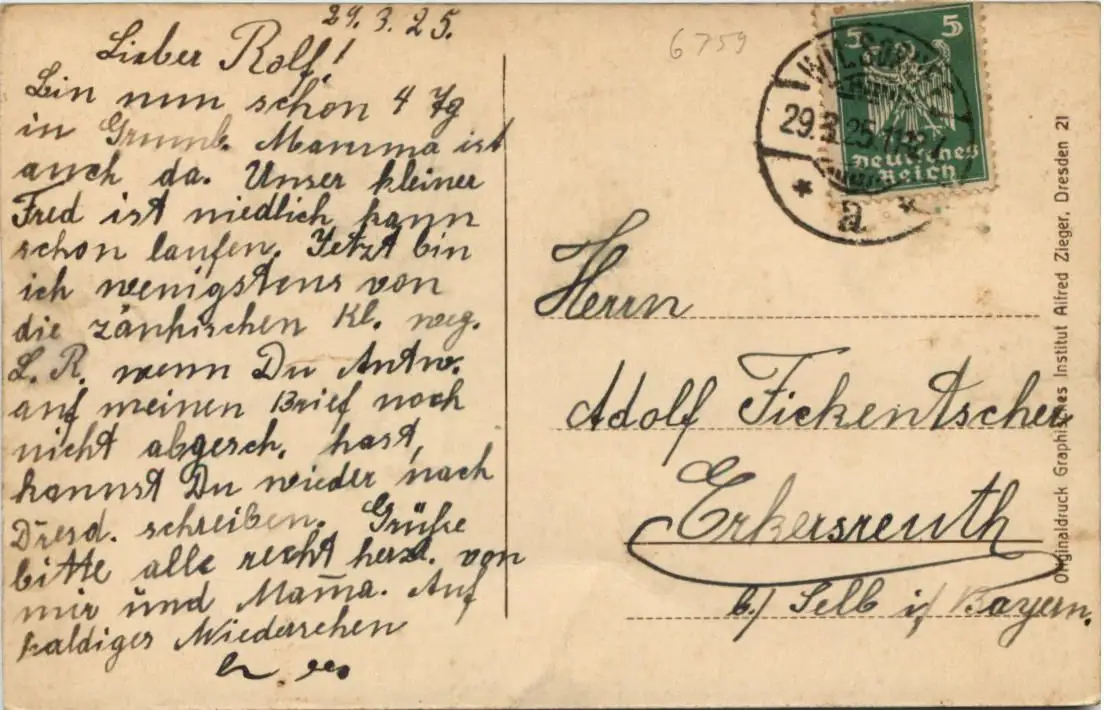 29.3.25.
Lieber Rolf!
Bin nun schon 4 Tg
in Grumb. Mamma ist
auch da. Unser kleiner
Fred ist niedlich, kann
schon laufen. Jetzt bin
ich wenigstens von
die zänkischen Kl. weg.
L. R. wenn Du Antw.
auf meinen Brief noch
nicht abgesch. hast,
kannst Du wieder nach
Dresd. schreiben. Grüße
bitte alle recht herzl. von
mir und Mama. Auf
baldiges Wiedersehen
6759
5 5
Deutsches
Reich
29.3.25.
* a. *
Herrn
Adolf Fickentscher
Erkersreuth
b/ Selb i/ Bayern.
Originaldruck Graphisches Institut Alfred Zieger, Dresden 21